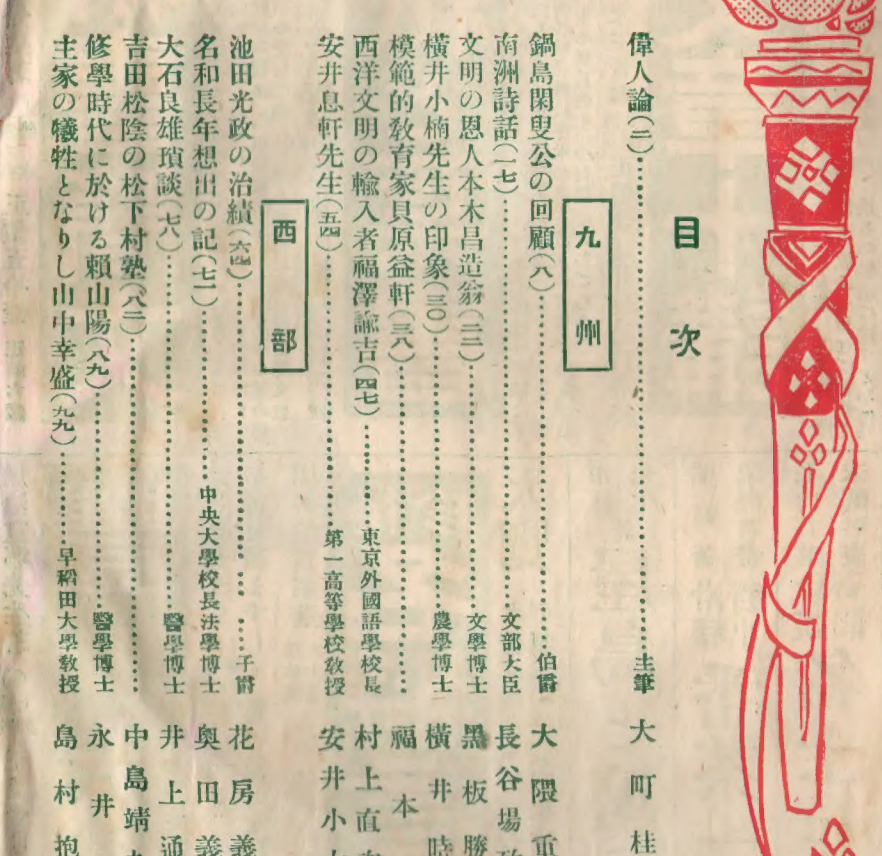 目次
偉人論(二)……主筆 大町桂
九州
鍋島閑叟公の回顧(八)……伯爵 大隈重
南洲詩話(一七)……文部大臣 長谷場
文明の恩人本木昌造翁(二二)……文學博士 黑板勝
橫井小楠先生の印象(三〇)……農學博士 橫井時
模範的敎育家貝原益軒(三八)……福本
西洋文明の輸入者福澤諭吉(四七)……東京外國語學校長 村上直
安井息軒先生(五四)……第一高等學校敎授 安井小
西部
池田光政の治績(六四)……子爵 花房義
名和長年想出の記(七一)……中央大學校長法學博士 奧田義
大石良雄瑣談(七八)……醫學博士 井上通
吉田松陰の松下村塾(八二)……中島靖
修學時代に於ける賴山陽(八九)……醫學博士 永井
主家の犧牲となりし山中幸盛(九九)……早稻田大學敎授 島村抱